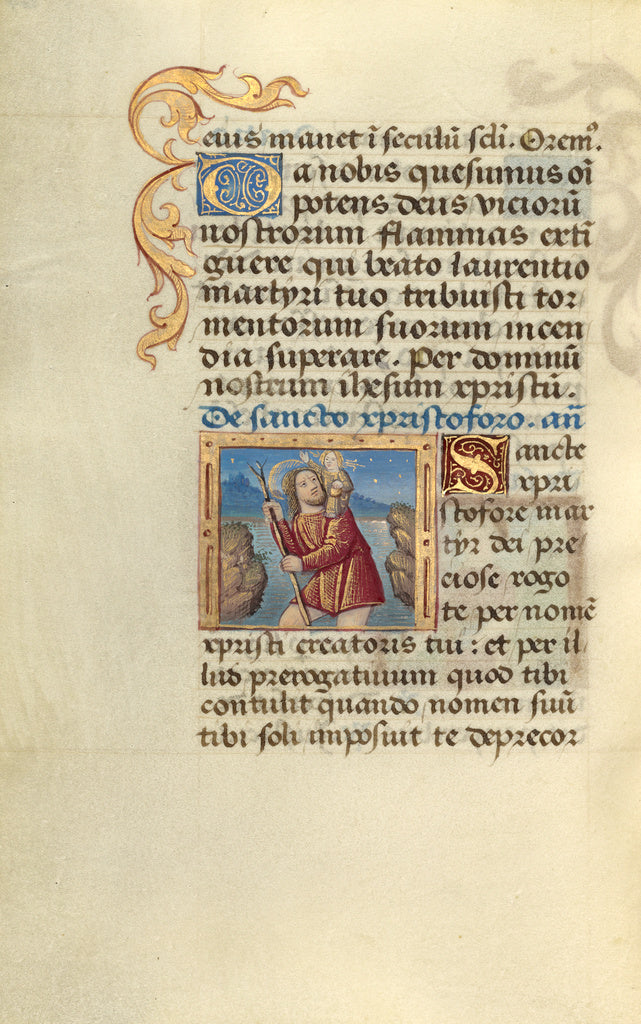 eius manet ī seculū scli. Orem⁹.
Da nobis quesumus oī
potens deus viciorū
nostrorum flammas exti
guere qui beato laurentio
martyri tuo tribuisti tor
mentorum suorum incen
dia superare. per dominū
nostrum ihesum xpristū.
De sancto xpristoforo. añ
Sancte
xpri
stofore mar
tyr dei pre
ciose rogo
te per nomē
xpristi creatoris tui : et per il
lud prerogatiuum quod tibi
contulit quando nomen suū
tibi soli imposuit te deprecor